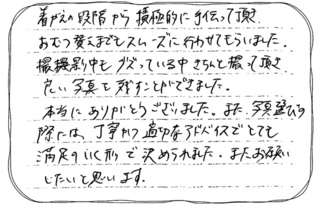 着がえの段階から積極的に手伝って頂き
おむつ替えまでもスムーズに行わせてもらいました。
撮影中もぐずっている中きちんと撮って頂き
良い写真を残すことができました。
本当にありがとうございました。また、写真選びの
際には、丁寧かつ適切なアドバイスでとても
満足のいく形で決められました。またお願い
したいと思います。